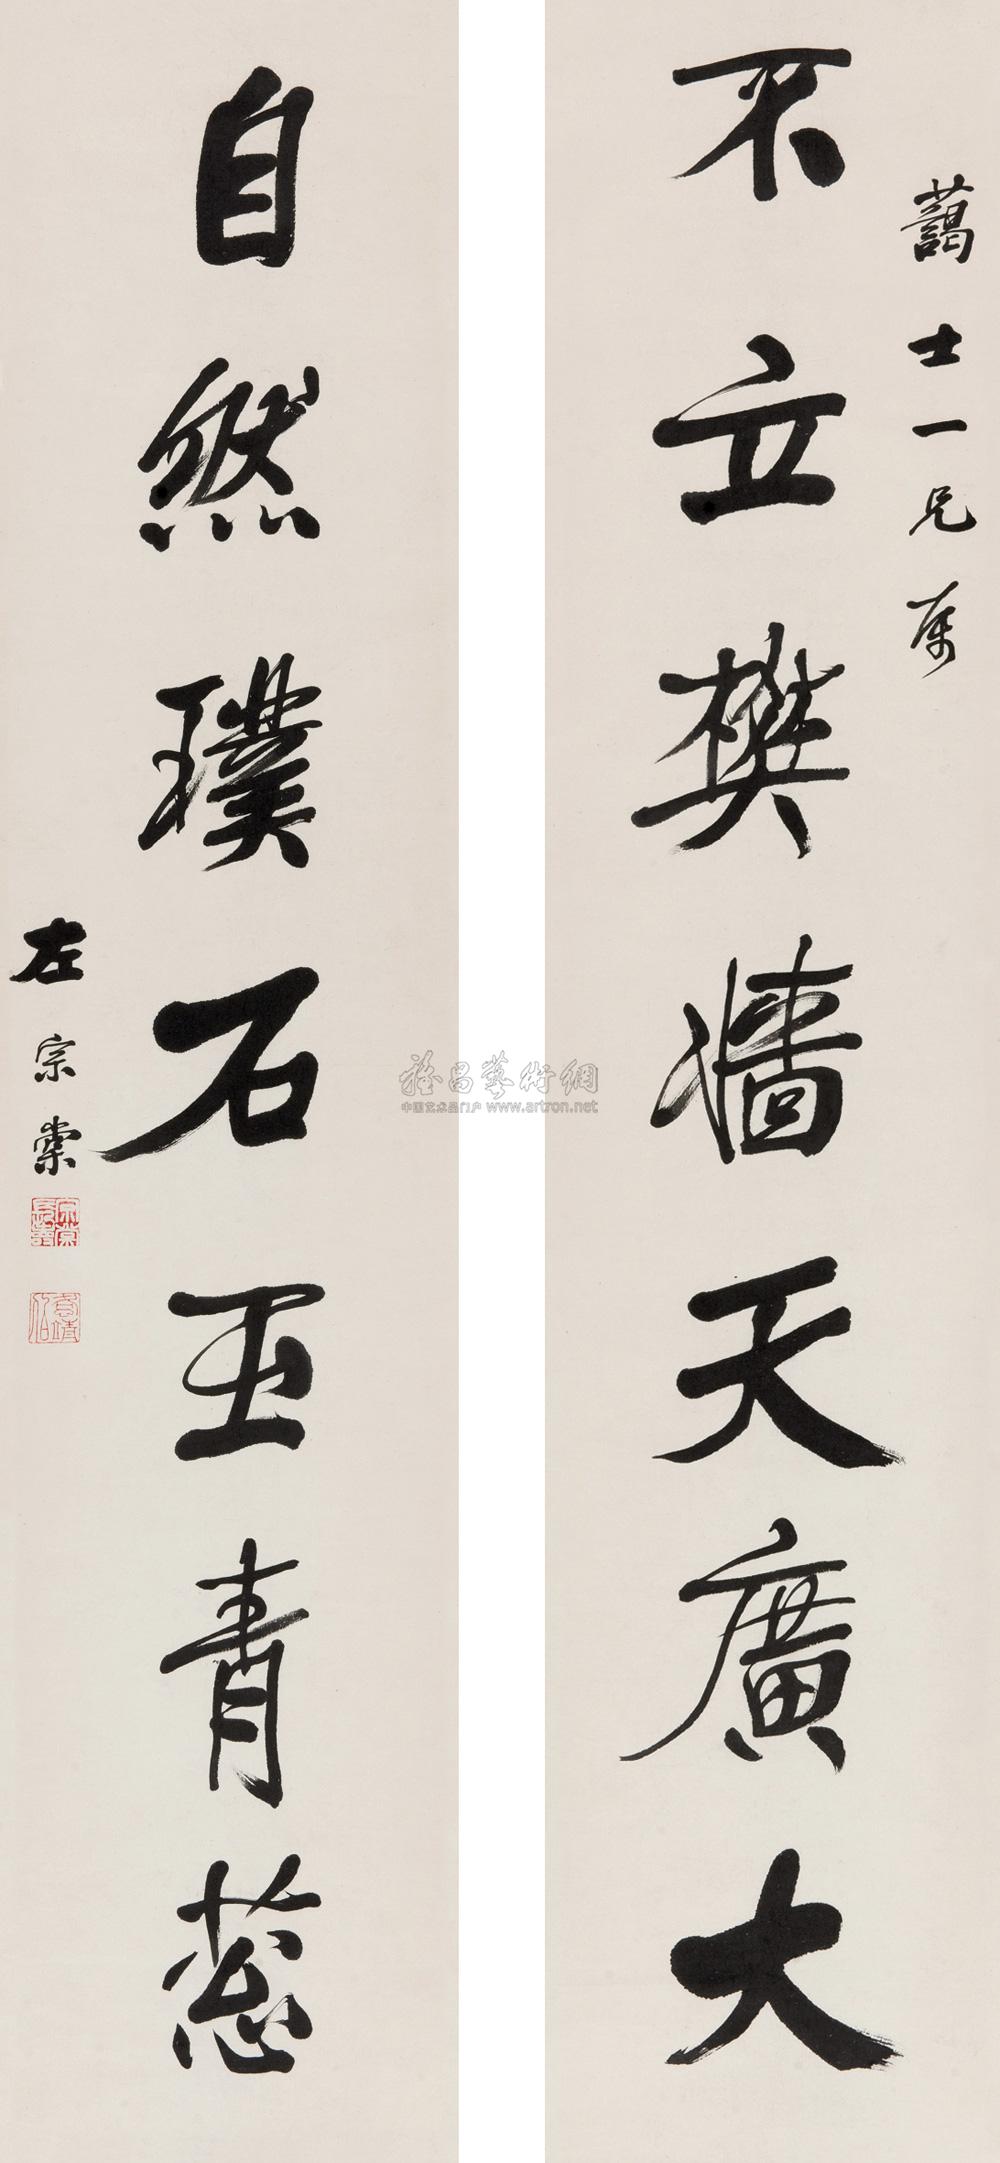 藹士一兄属
不立樊牆天廣大
自然璞石玉青葱
左宗棠
宗棠長壽
恪靖伯
雅昌藝術網
中国艺术品门户 www.artron.net